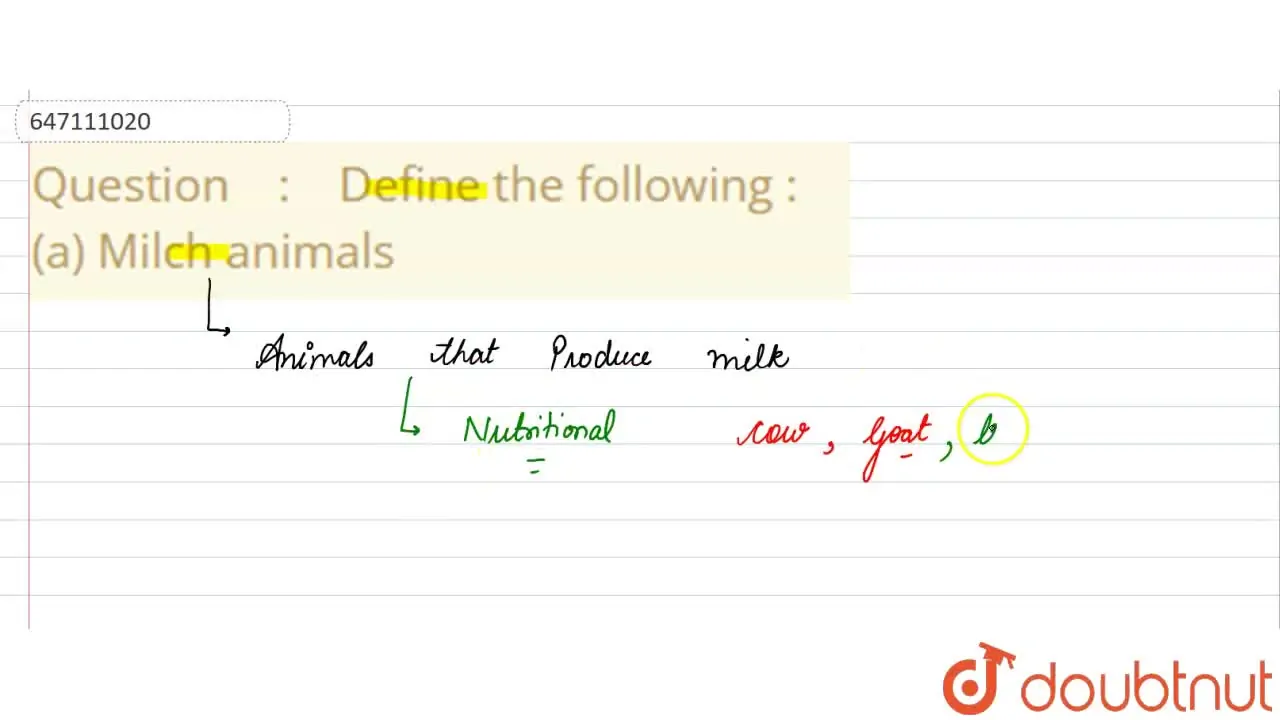 647111020
Question : Define the following :
(a) Milch animals
Animals that Produce milk
Nutritional cow, Goat, b
doubtnut